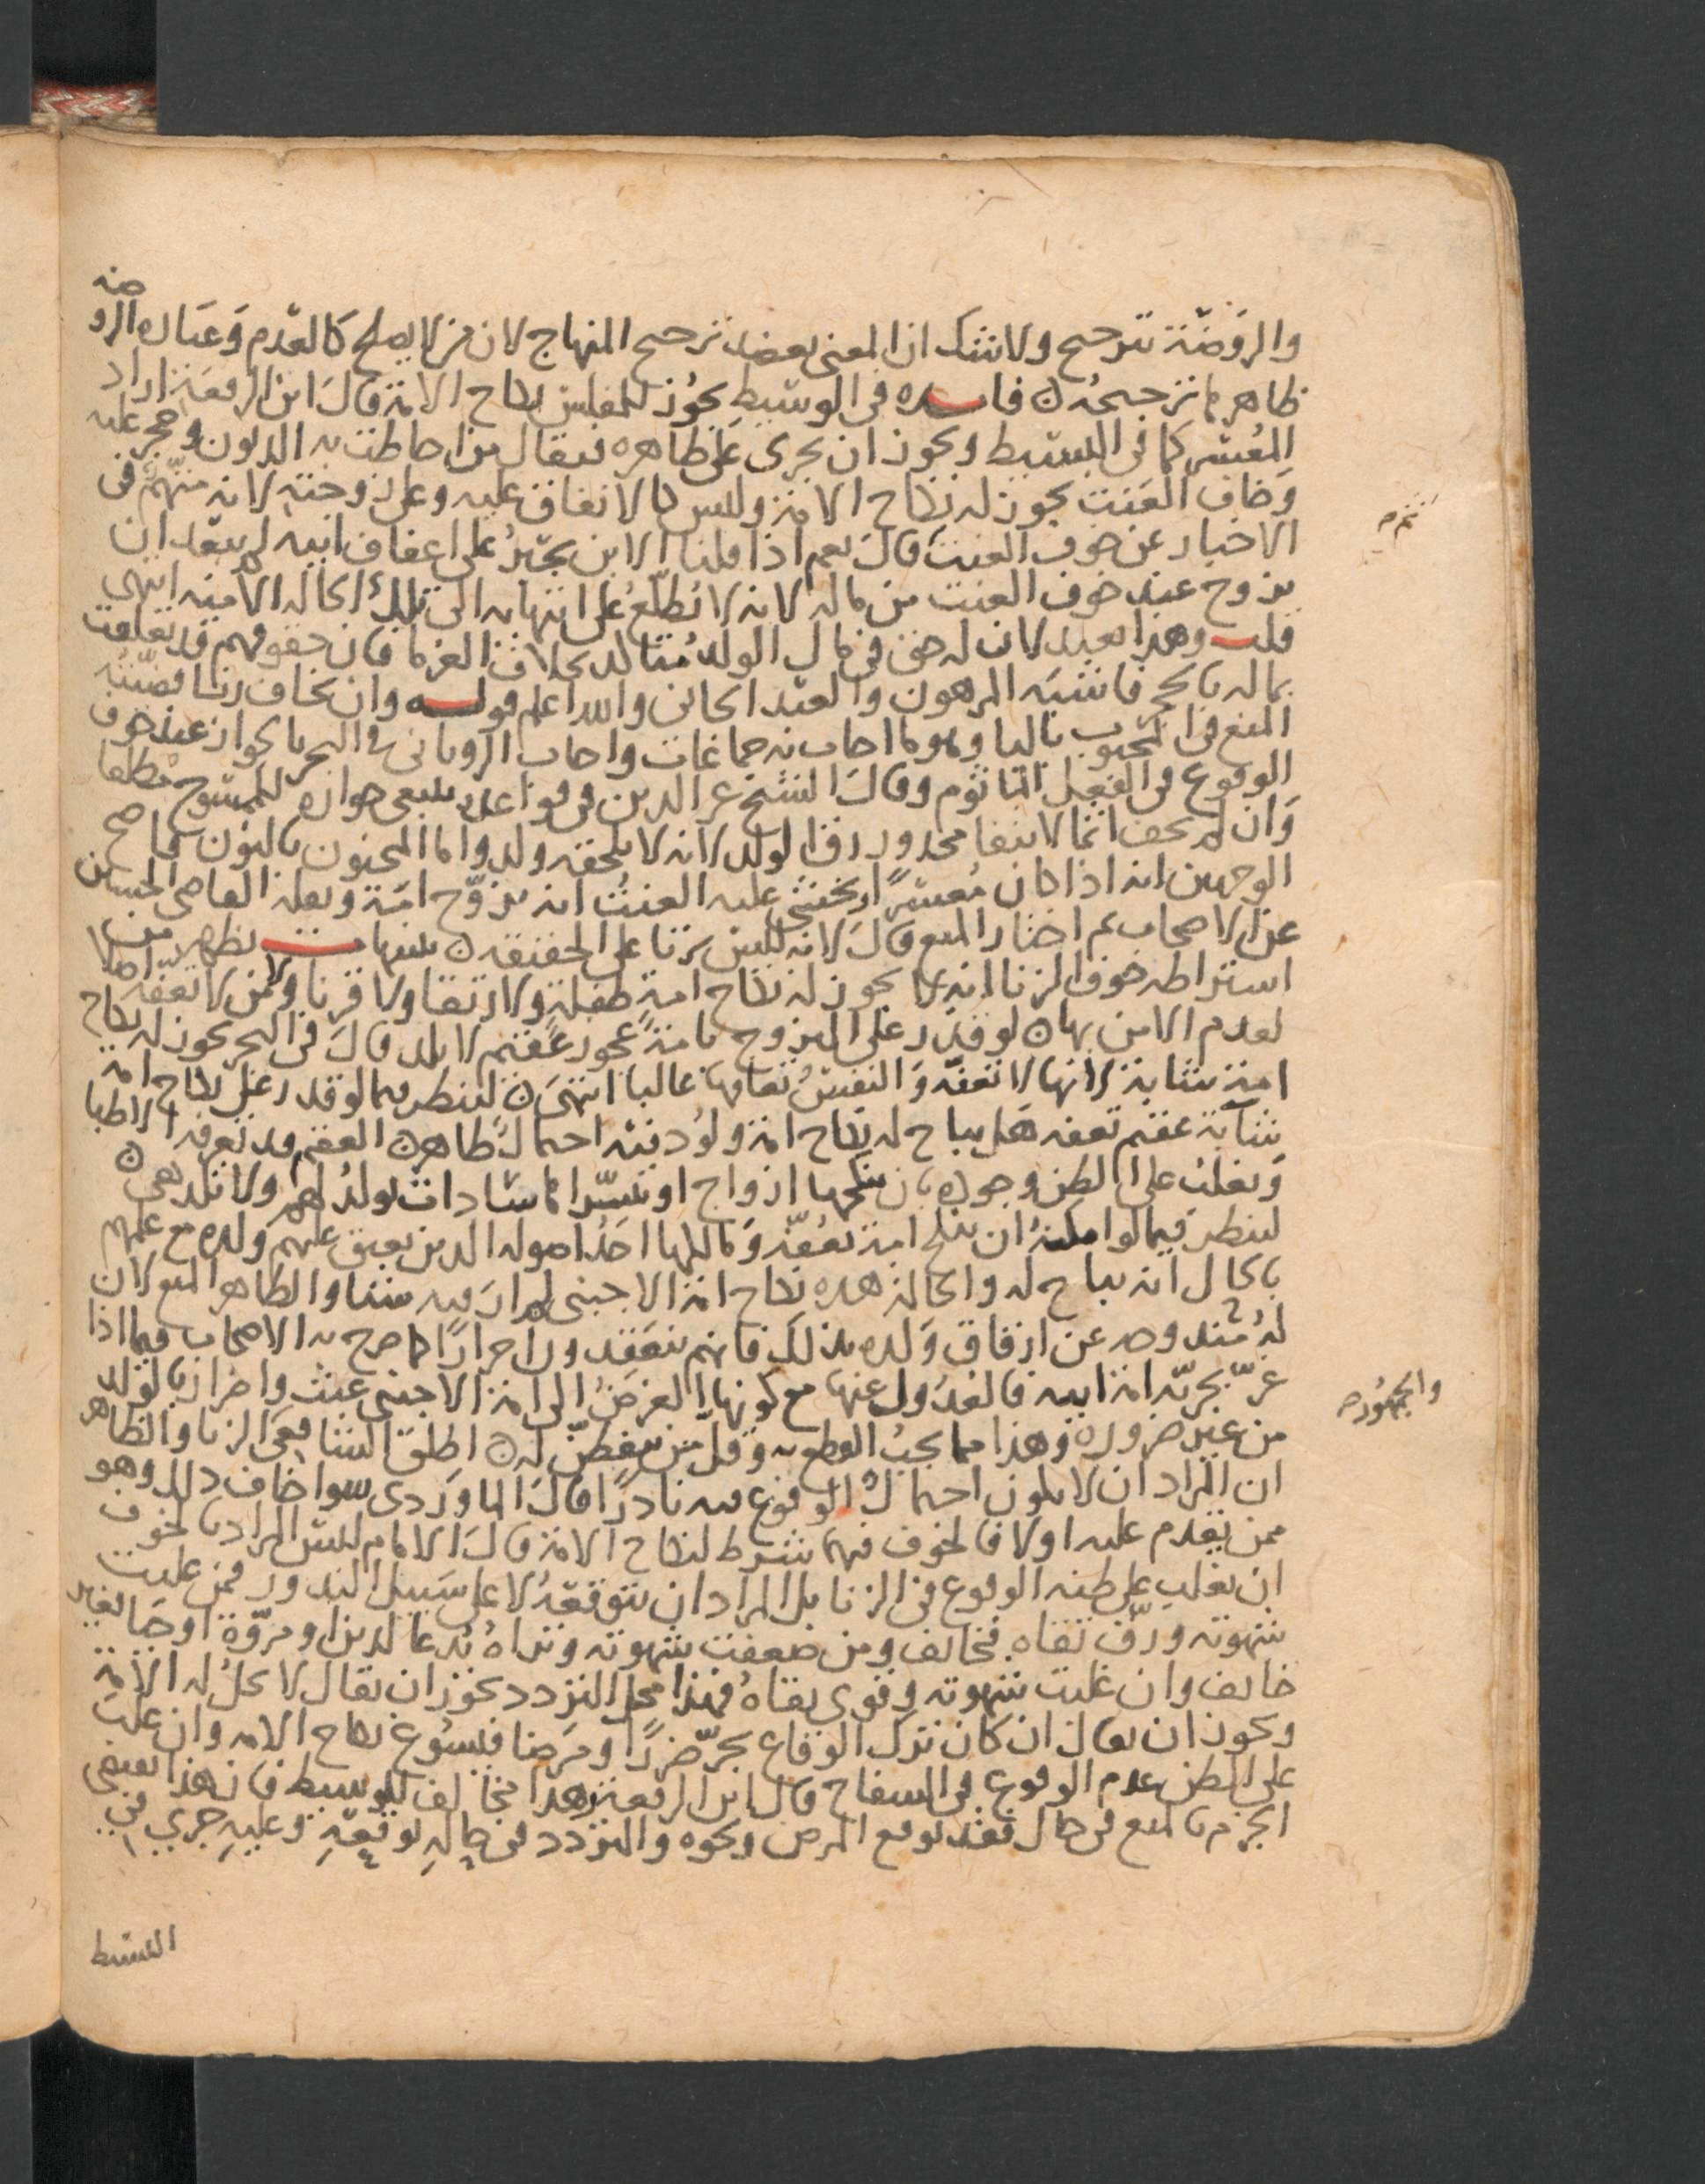 والروضة ترجيح ولا شك ان المعنى يعضد ترجيح المنهاج لان من لا يصلح كالعدم وعبارة الروضة
ظاهرها ترجيحه ه فائدة في الوسيط يجوز للمفلس نكاح الامة قال ابن الرفعة اراد
المعسر كما في البسيط ويجوز ان يجرى على ظاهره فيقال من احاطت به الديون وحجر عليه
وخاف العنت يجوز له نكاح الامة وليس كالانفاق عليه وعلى زوجته لانه متهم في
الاخبار عن خوف العنت قال نعم اذا قلنا الابن يجبر على اعفاف ابيه لم يبعد ان
يزوج عند خوف العنت من ماله لانه لا يطلع على انتهائه الى تلك الحالة الا منه انتهى
قلت وهذا بعيد لان له حق في مال الولد بخلاف الغرما فان حقوقهم قد تعلقت
بماله بالحجر فاشبه المرهون والعبد الجاني والله اعلم قوله وان يخاف زنا قضيته
المنع في المجبوب بالبا وهو ما اجاب به جماعات واجاب الروياني في البحر بالجواز عند خوف
الوقوع في الفعل الماثوم وقال الشيخ عز الدين في قواعده ينبغي جوازه للممسوح مطلقا
وان لم يخف اثما لانتفا محذور رق الولد لانه لا يلحقه ولد واما المجنون بالنون فاصح
الوجهين انه اذا كان معسرا ويخشى عليه العنت انه يزوج امة ونقله القاضي الحسين
عن الاصحاب ثم اختار المنع قال لانه ليس بزنا على الحقيقة ه تنبيهات يظهر من
اشتراطه خوف الزنا انه لا يجوز له نكاح امة طفلة ولا رتقا ولا قرنا ولا من لا تعفه اصلا
لعدم الامن بها ه لو قدر على التزوج بامة عجوز عقيم لا تلد قال في البحر يجوز له نكاح
امة شابة لانها لا تعفه والنفس تعافها غالبا انتهى ه لينظر فيما لو قدر على نكاح امة
شابة عقيم تعفه هل يباح له نكاح امة ولود فيه احتمال ظاهر ه العقم قد تعرفه الاطبا
ويغلب على الظن وجوده بان ينكحها ازواج او يتسراها سادات يولد لهم ولا تلد هي ه
لينظر فيما لو امكنه ان ينكح امة تعفه ومالكها احد اصوله الذين يعتق عليهم ولده مع علمهم
بالحال انه يباح له والحالة هذه نكاح امة الاجنبي لم ار فيه شيئا والظاهر المنع لان
له مندوحة عن ارقاق ولده بذلك فانهم ينعقدون احرارا كما صرح به الاصحاب فيما اذا
غر بحرية امة ابيه فالعدول عنها مع كونها الغرض الى امة الاجنبي عبث واضرار بالولد
من غير ضرورة وهذا مما يجب القطع به وقل من يتفطن له ه اطلق الشافعي الزنا والظاهر
ان المراد ان لا يكون احتمال الوقوع فيه نادرا قال الماوردي سوا خاف ذلك وهو
ممن يقدم عليه اولا فالخوف فيهما شرط لنكاح الامة قال الامام ليس المراد بالخوف
ان يغلب على ظنه الوقوع في الزنا بل المراد ان يتوقعه لا على سبيل الندور فمن غلبت
شهوته ورق تقاه فخائف ومن ضعفت شهوته وتراه تدعا لدين او مروة او حيا فغير
خائف وان غلبت شهوته وقوى تقاه فهذا محل التردد يجوز ان يقال لا تحل له الامة
ويجوز ان يقال ان كان ترك الوقاع يجر ضررا ومرضا فيسوغ نكاح الامة وان غلب
على الظن عدم الوقوع في السفاح قال ابن الرفعة وهذا مخالف للوسيط فان هذا يقتضي
الجزم بالمنع في حال فقد توقع المرض ونحوه والتردد في حالة توقعه وعليه جرى في
والجمهور
البسيط